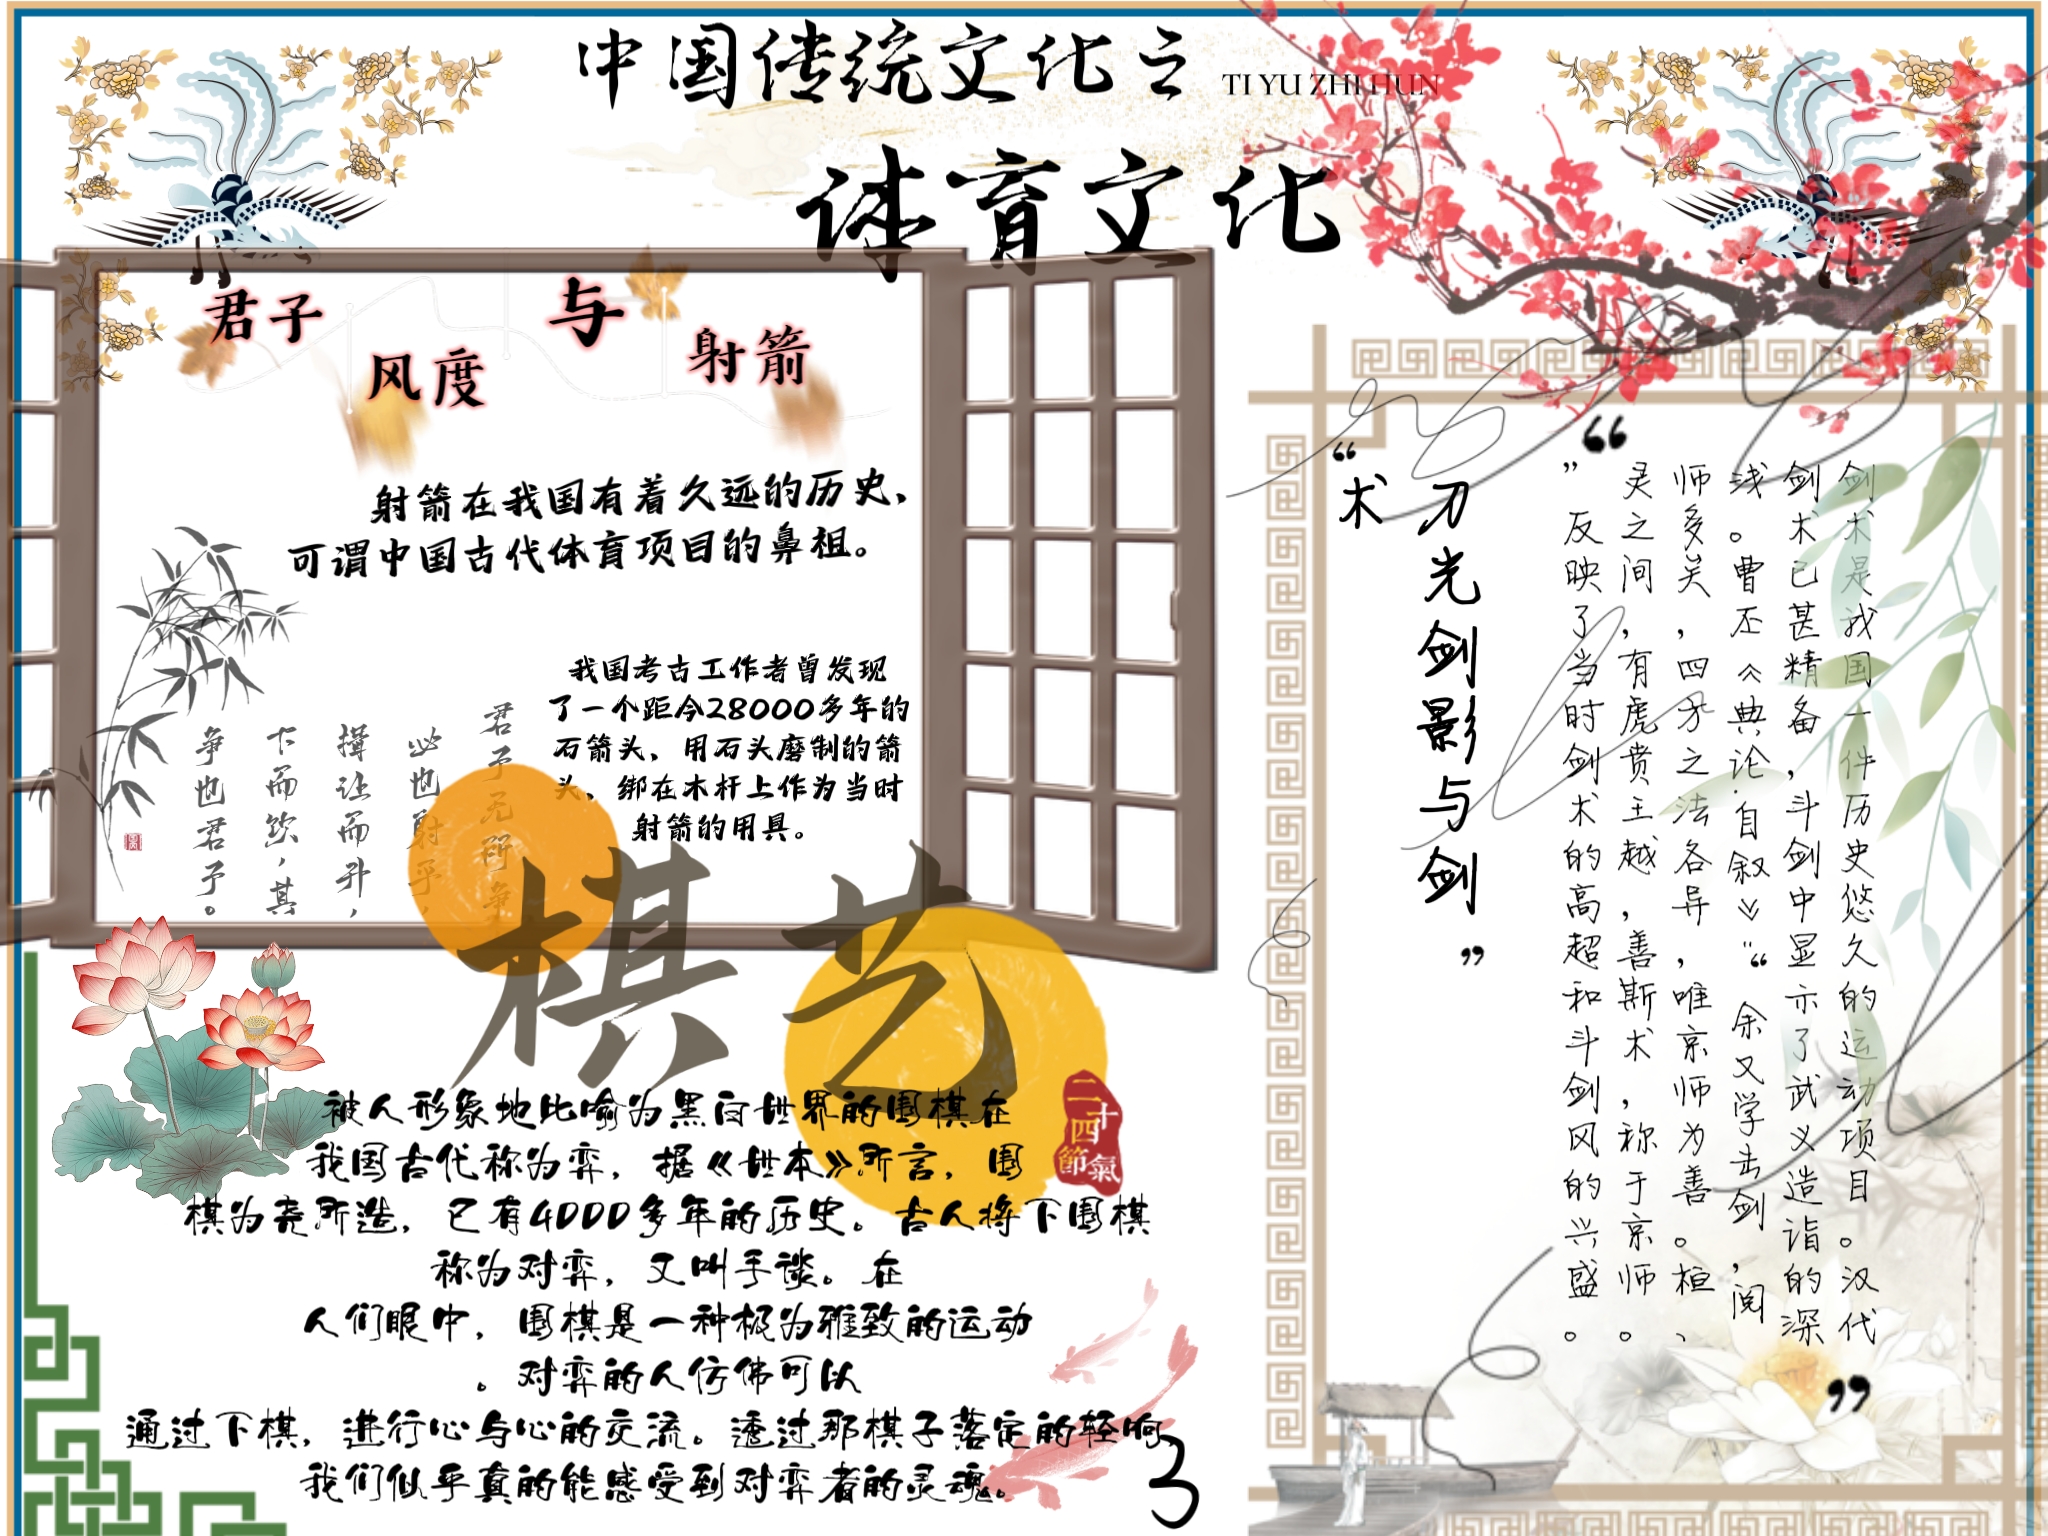 中国传统文化之
TI YU ZHI HUN
体育文化
君子
风度
与
射箭
射箭在我国有着久远的历史，
可谓中国古代体育项目的鼻祖。
我国考古工作者曾发现
了一个距今28000多年的
石箭头、用石头磨制的箭
头、绑在木杆上作为当时
射箭的用具。
君子无所争
必也射乎，
揖让而升，
下而饮，其
争也君子。
棋艺
二十四節氣
被人形象地比喻为黑白世界的围棋在
我国古代称为弈，据《世本》所言，围
棋为尧所造，已有4000多年的历史。古人将下围棋
称为对弈，又叫手谈。在
人们眼中，围棋是一种极为雅致的运动
。对弈的人仿佛可以
通过下棋，进行心与心的交流。透过那棋子落定的轻响
我们似乎真的能感受到对弈者的灵魂。
3
“
刀光剑影与剑
术
”
“
剑术是我国一件历史悠久的运动项目。汉代
剑术已甚精备，斗剑中显示了武义造诣的深
浅。曹丕《典论·自叙》“余又学击剑，阅
师多关，四方之法各异，唯京师为善。桓、
灵之间，有虎贲王越，善斯术，称于京师。
”反映了当时剑术的高超和斗剑风的兴盛。
”